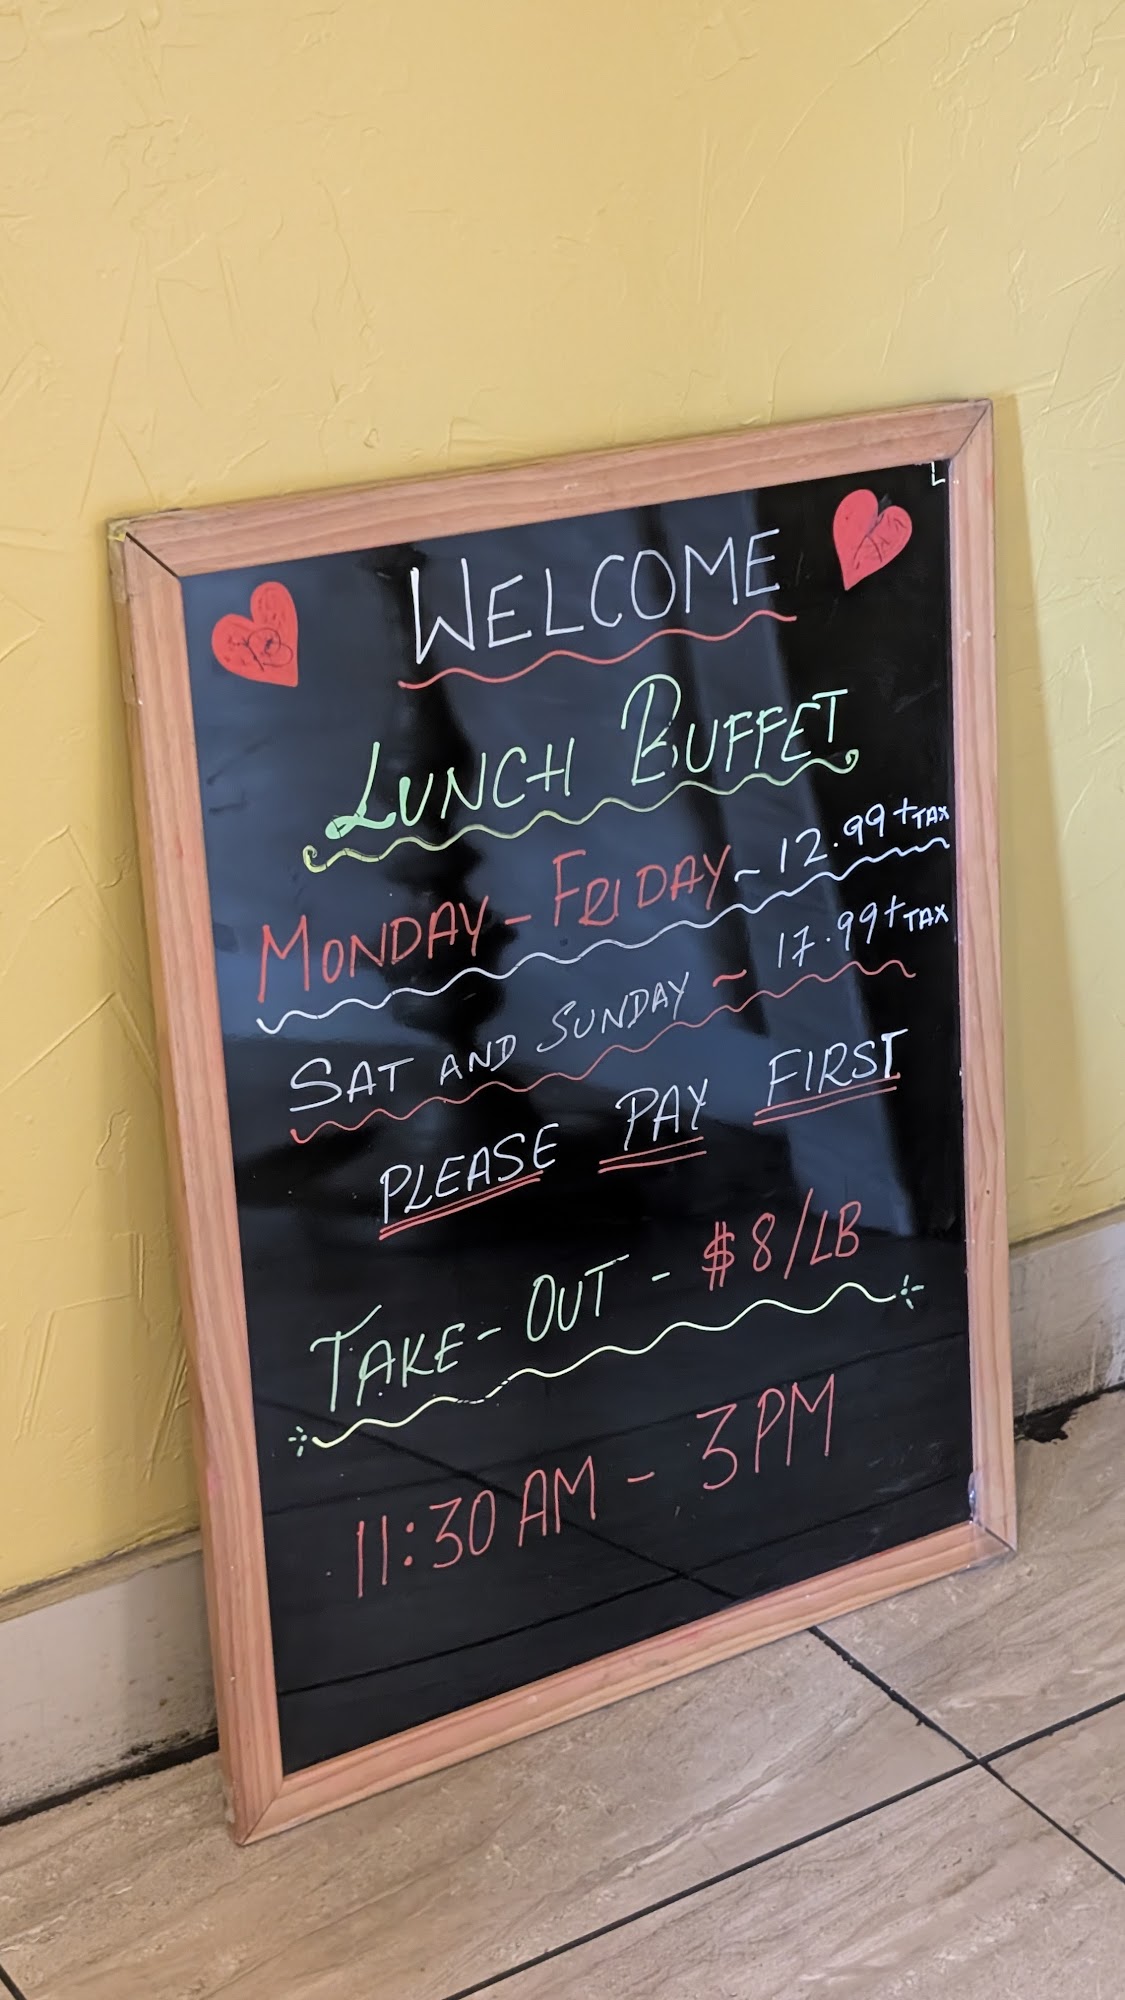 WELCOME
LUNCH BUFFET
MONDAY - FRIDAY ~ 12.99 + TAX
SAT AND SUNDAY ~ 17.99 + TAX
PLEASE PAY FIRST
TAKE-OUT - $8/LB
11:30 AM - 3PM